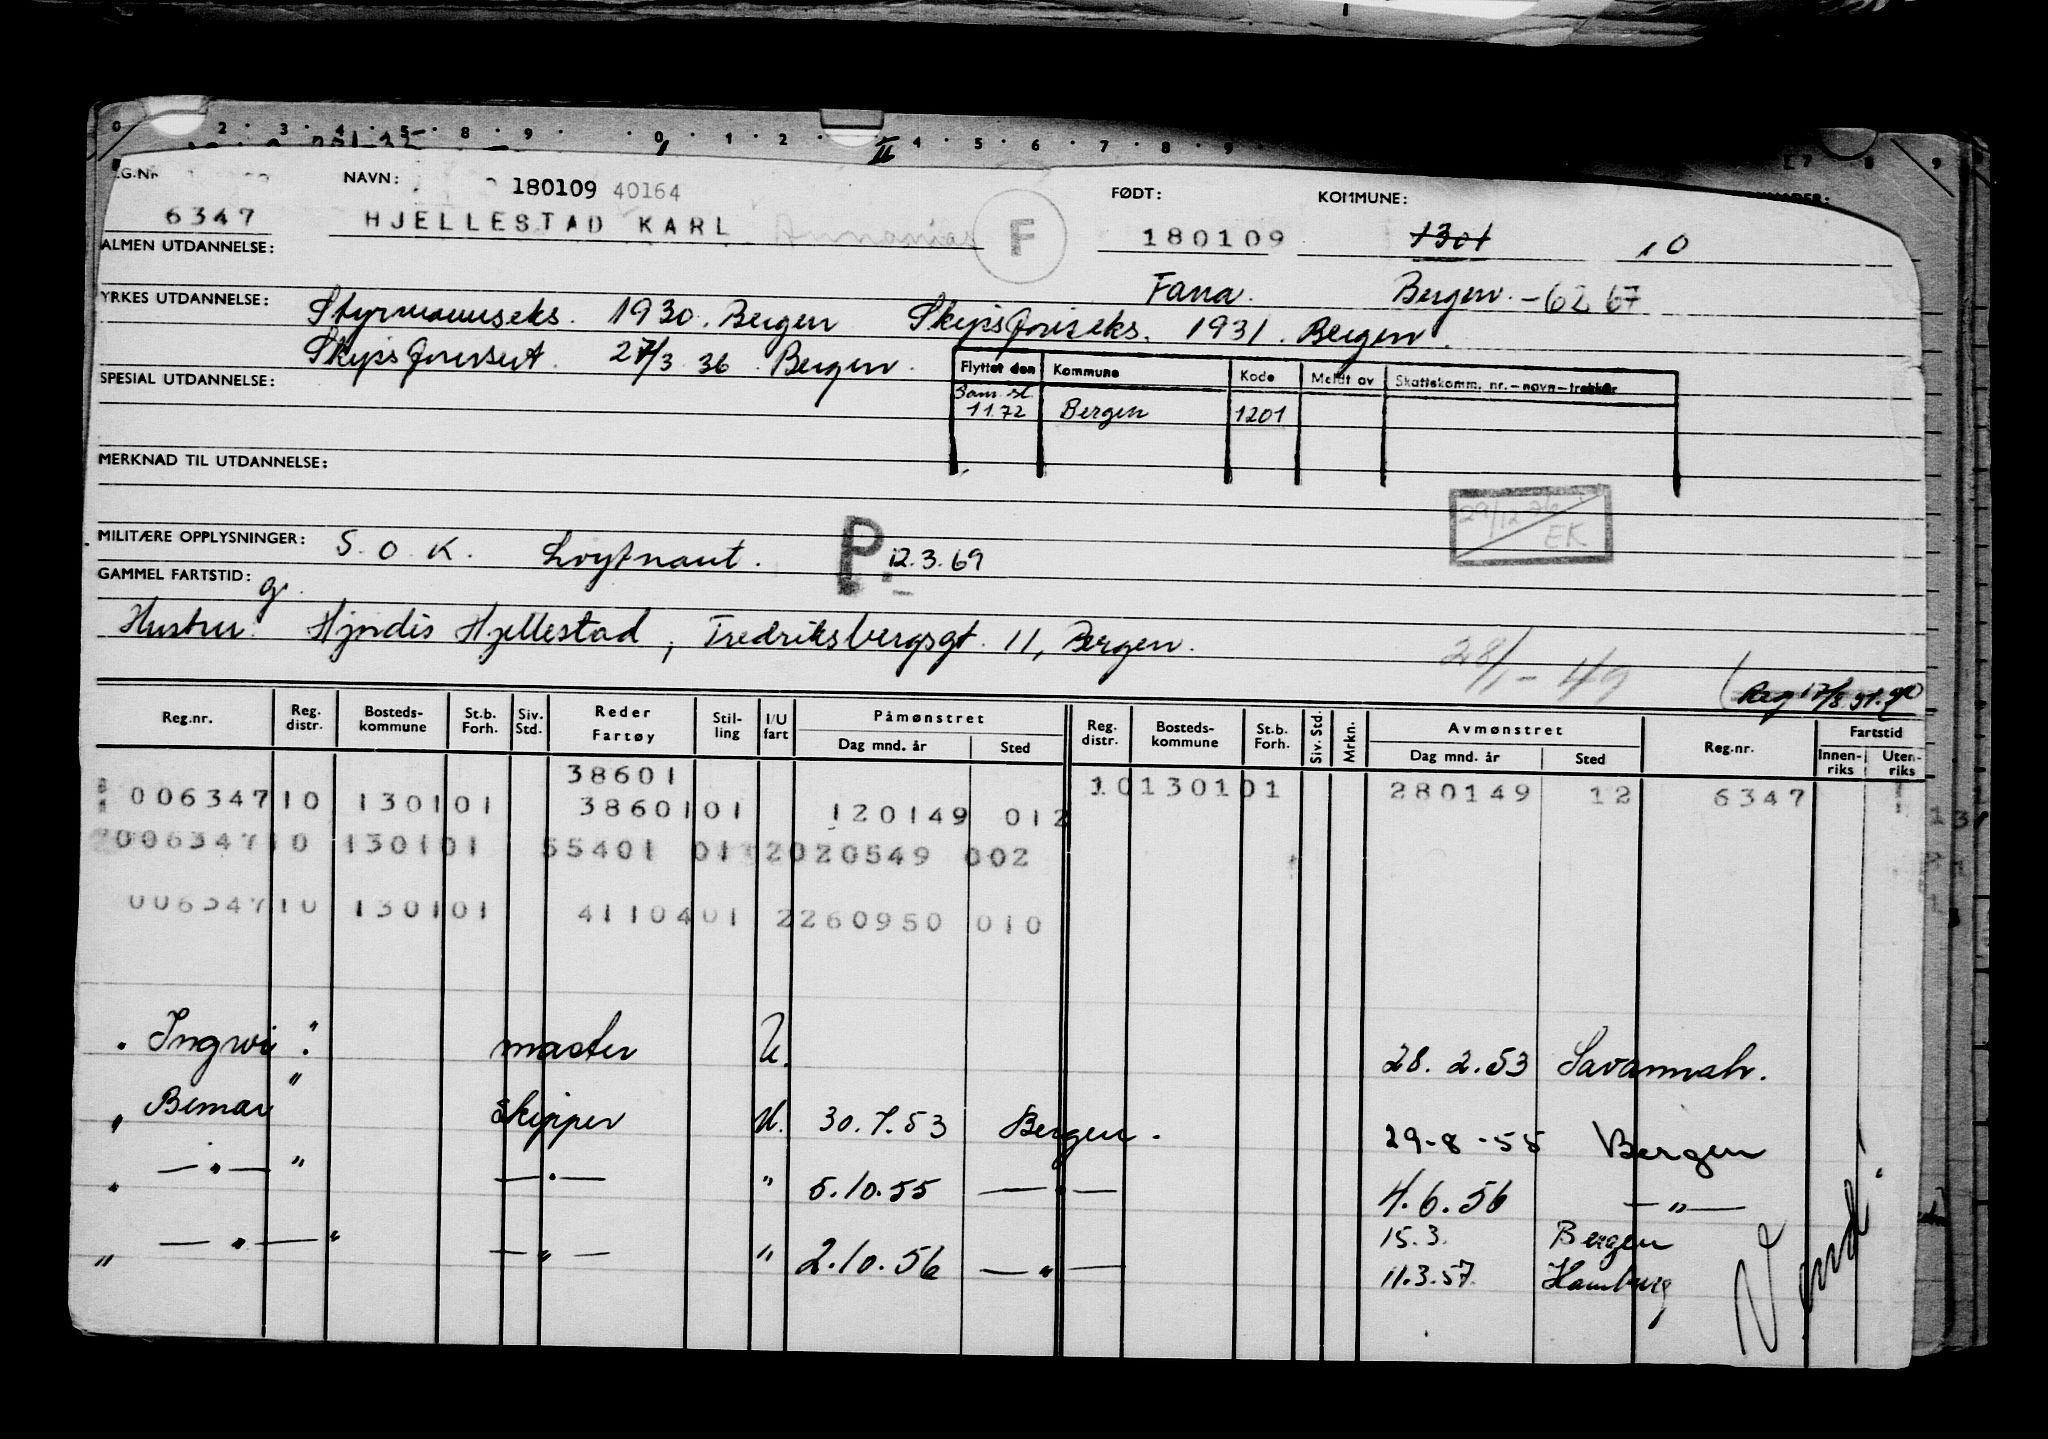 0 2 3 4 5 8 9 0 1 2 4 5 6 7 8 9 7 8 9
NAVN: 180109 40164 FØDT: KOMMUNE:
6347 HJELLESTAD KARL Annanias F 180109 1301 10
ALMEN UTDANNELSE:
Fana. Bergen. -62 67
YRKES UTDANNELSE: Styrmannseks. 1930. Bergen Skipsføriseks. 1931. Bergen.
Skipsførersert. 27/3 36. Bergen.
SPESIAL UTDANNELSE:
Flyttet den Kommune Kode Meldt av Skattekomm. nr. – navn – trekkår
Sam. sl. 1172 Bergen 1201
MERKNAD TIL UTDANNELSE:
29/12 76 EK
MILITÆRE OPPLYSNINGER: S.O.K. Løytnant. P. 12.3.69
GAMMEL FARTSTID: g.
Hustru: Hjørdis Hjellestad, Fredriksbergsgt. 11, Bergen.
28/1 - 49
Reg 17/8 51.
Reg.nr. Reg. distr. Bosteds- kommune St.b. Forh. Siv. Std. Reder Fartøy Stil- ling I/U fart Påmønstret Dag mnd. år Sted Reg. distr. Bosteds- kommune St.b. Forh. Siv. Std. Mrkn. Avmønstret Dag mnd. år Sted Reg.nr. Fartstid Innen- riks Uten- riks
38601
006347 10 130101 3860101 120149 012 10130101 280149 12 6347
006347 10 130101 55401 01 2020549 002
006347 10 130101 4110401 2260950 010
" Ingwi " master U. 28. 2.53 Savannah.
" Bemar " Skipper U. 30.7.53 Bergen. 29-8-55 Bergen
" —"— " —"— " 5.10.55 —"— 4.6.56 —"—
15.3. Bergen
" —"— " —"— " 2.10.56 —"— 11.3.57. Hamburg
Vend!